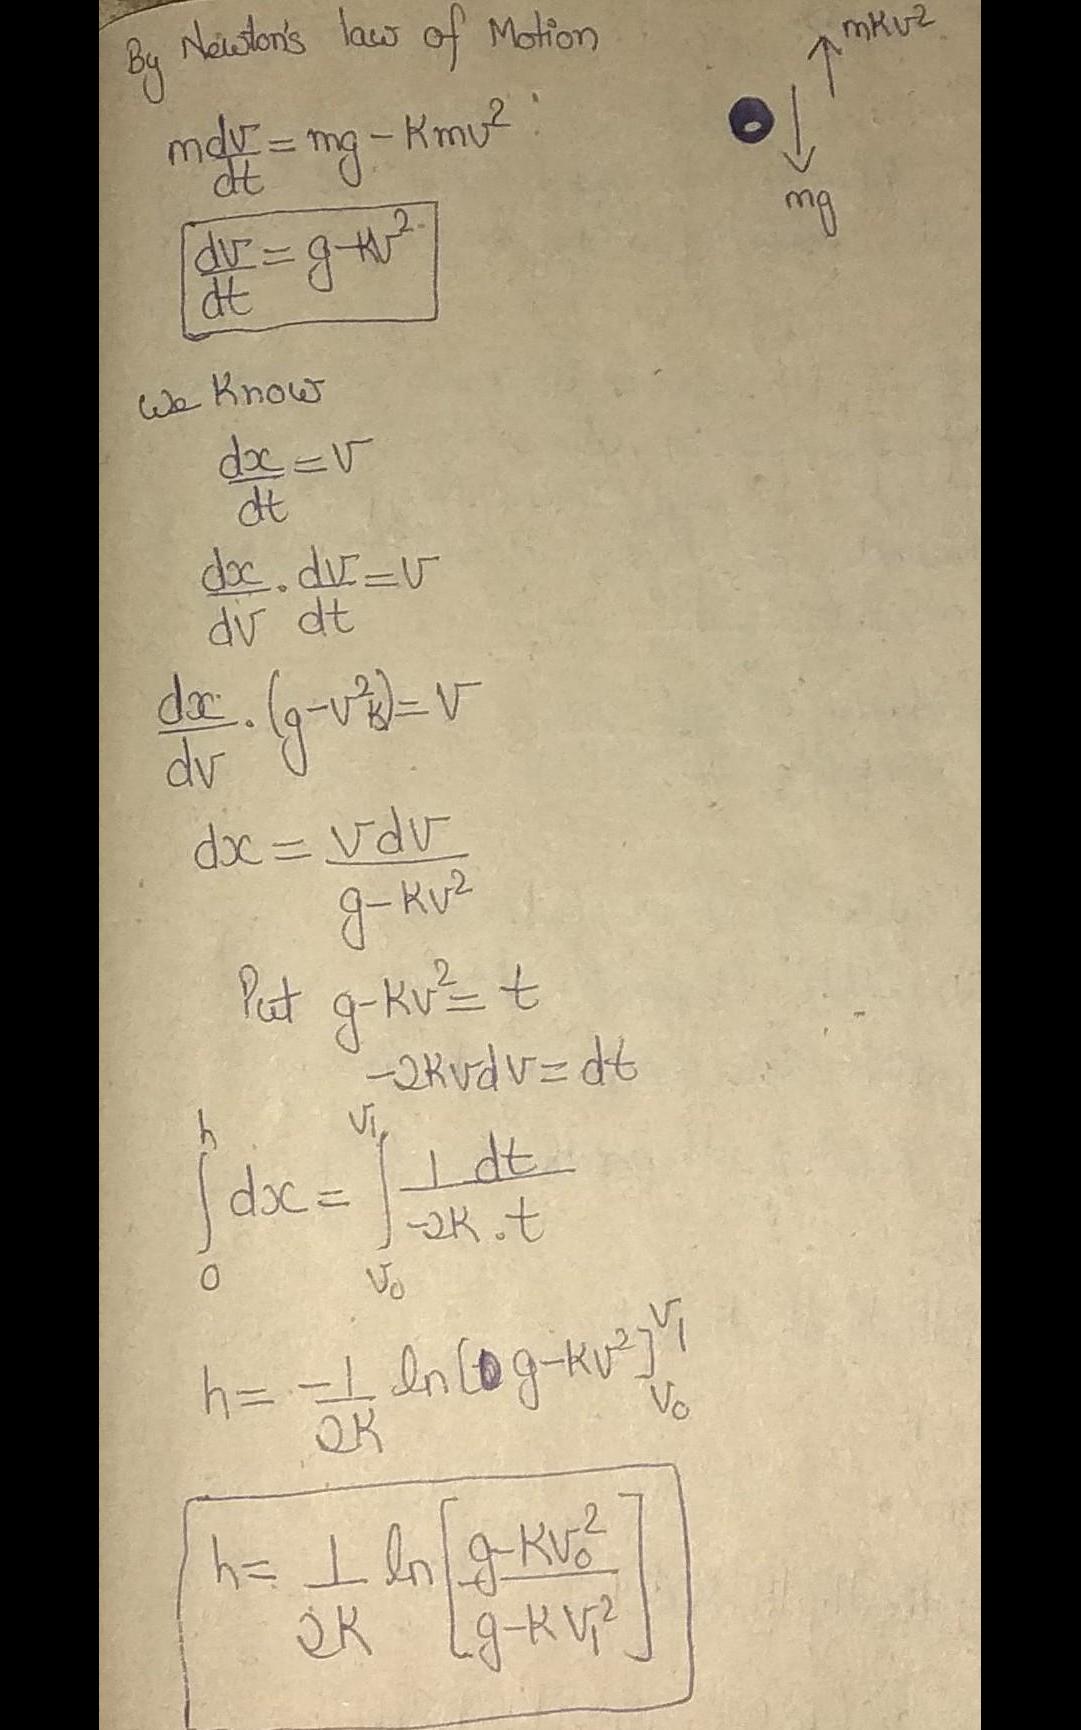 By Newton's law of Motion
mKv²
m dv/dt = mg - Kmv²
mg
dv/dt = g-Kv²
We Know
dx/dt = v
dx/dv . dv/dt = v
dx/dv . (g-v²k) = v
dx = vdv/g-Kv²
Put g-Kv² = t
-2Kvdv = dt
∫₀ʰ dx = ∫_{v₀}^{v₁} 1 dt/-2K.t
h = -1/2K ln[g-Kv²]_{v₀}^{v₁}
h = 1/2K ln[g-Kv₀²/g-Kv₁²]